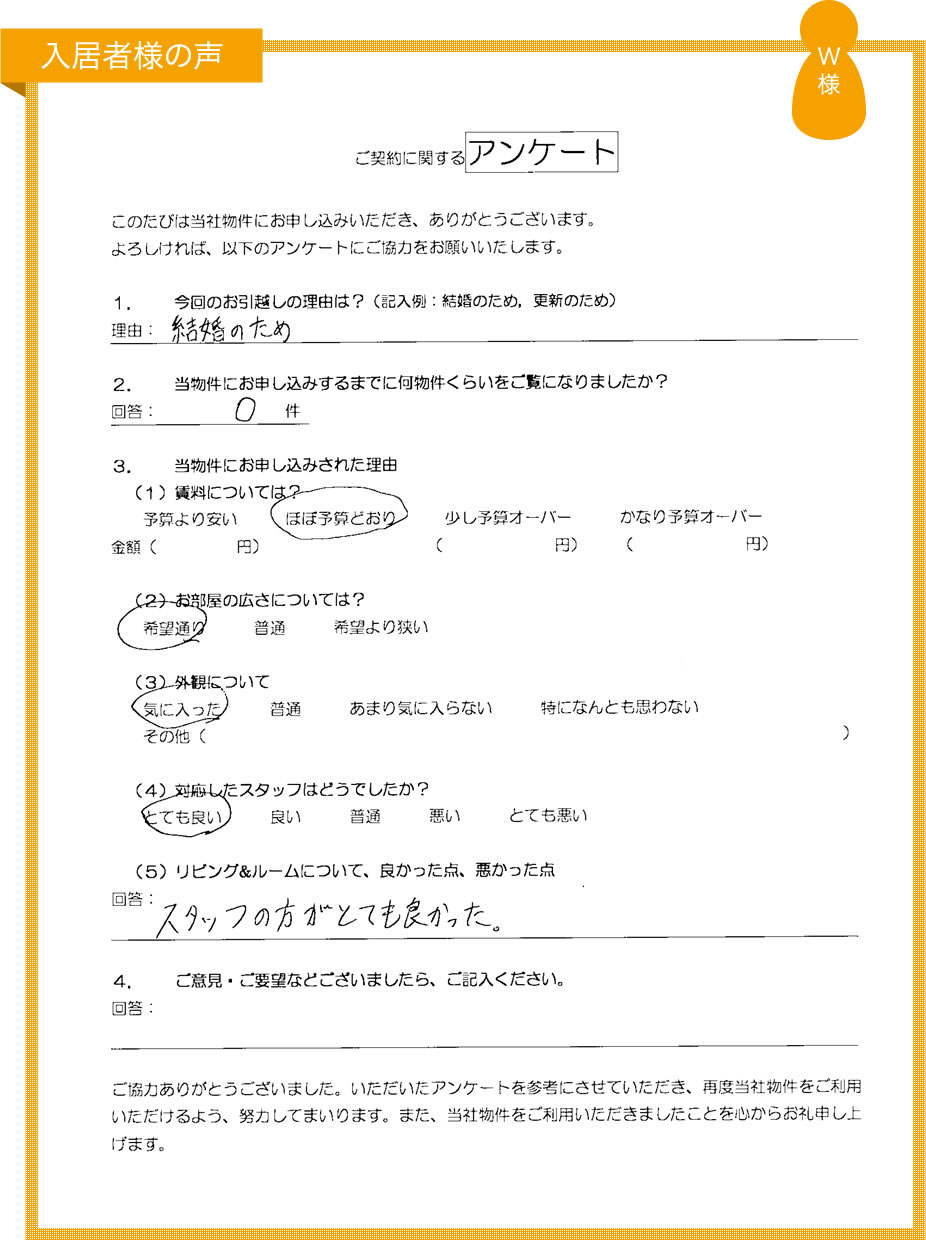 入居者様の声
W
様
ご契約に関するアンケート
このたびは当社物件にお申し込みいただき、ありがとうございます。
よろしければ、以下のアンケートにご協力をお願いいたします。
1. 今回のお引越しの理由は？（記入例：結婚のため，更新のため）
理由： 結婚のため
2. 当物件にお申し込みするまでに何物件くらいをご覧になりましたか？
回答： 0 件
3. 当物件にお申し込みされた理由
（1）賃料については？
予算より安い ほぼ予算どおり 少し予算オーバー かなり予算オーバー
金額（ 円） （ 円） （ 円）
（2）お部屋の広さについては？
希望通り 普通 希望より狭い
（3）外観について
気に入った 普通 あまり気に入らない 特になんとも思わない
その他（ ）
（4）対応したスタッフはどうでしたか？
とても良い 良い 普通 悪い とても悪い
（5）リビング&ルームについて、良かった点、悪かった点
回答： スタッフの方がとても良かった。
4. ご意見・ご要望などございましたら、ご記入ください。
回答：
ご協力ありがとうございました。いただいたアンケートを参考にさせていただき、再度当社物件をご利用
いただけるよう、努力してまいります。また、当社物件をご利用いただきましたことを心からお礼申し上
げます。